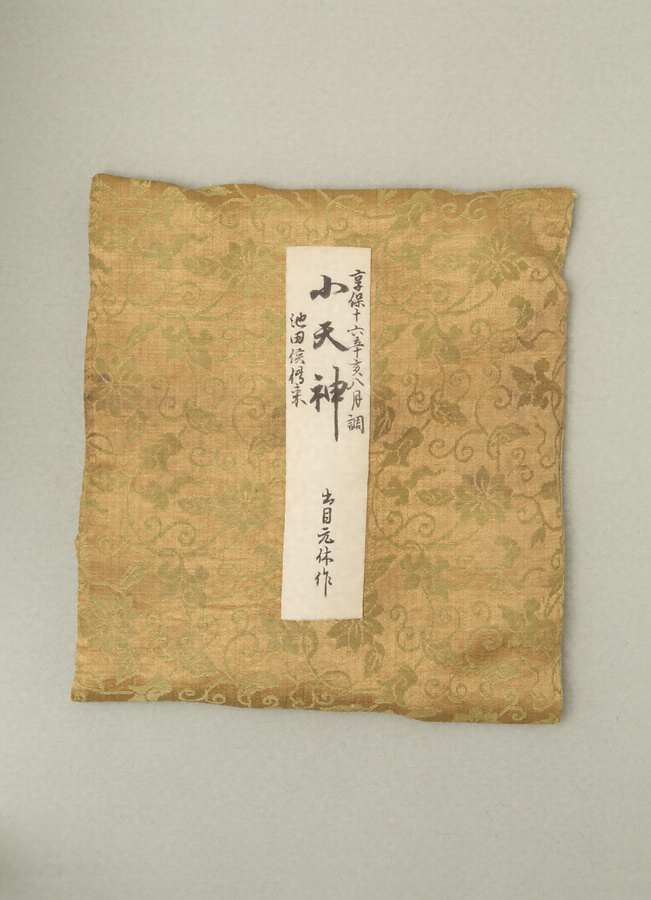 享保十六辛亥八月調
小天神
出目元休作
池田侯傳来